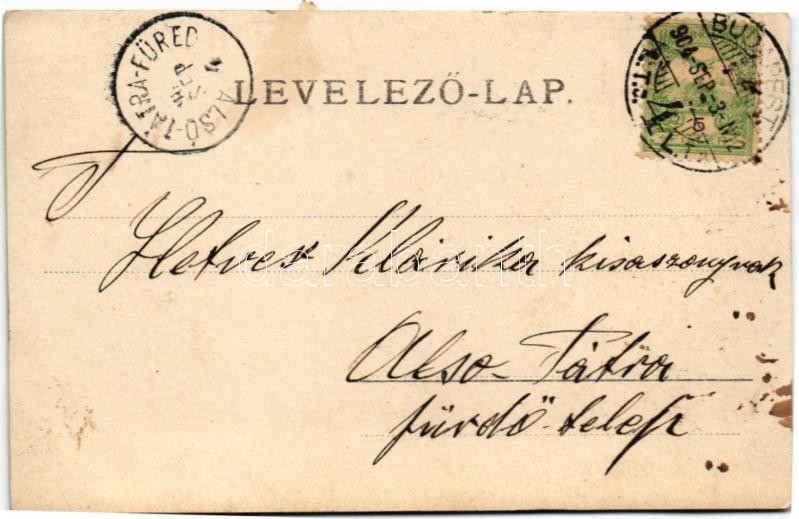 ALSÓ-TÁTRA-FÜRED
SEP 4
LEVELEZŐ-LAP.
BUDAPEST
904 SEP -3 N12
T.
Hetves Klárika kisaszonynak
Alsó-Tátra
fürdő-telep
darabanth